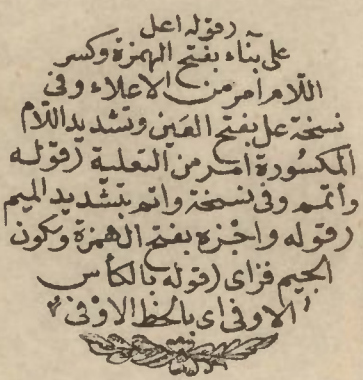 (قوله اعل
على بنّاء بفتح الهمزة وكسر
اللام امر من الاعلاء وفى
نسخة عل بفتح العين وتشديد اللام
المكسورة امر من التعلية (قوله
وأتمم وفى نسخة واتم بتشديد الميم
(قوله واجزه بفتح الهمزة وسكون
الجيم فزاى (قوله بالكأس
الاوفى اى بالحظ الاوفى